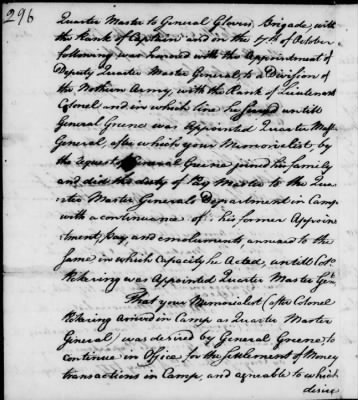 296
Quarter Master to General Glovers Brigade, with
the Rank of Captain and in the 17th of October
following was honored with the Appointment of
Deputy Quarter Master General, to a Division of
the Nothern Army, with the Rank of Lieutenant
Colonel and in which line he served untill
General Greene was Appointed Quarter Mast
General, after which your Memorialist, by
the request General Greene joined his family
and did the duty of Pay Master to the Qua
rter Master Generals Department in Camp
with a continuance of his former Appoin
tment, Pay, and emoluments, annexed to the
same in which Capacity he Acted, untill Colo
Pickering was Appointed Quarter Master Genl
That your Memorialist (after Colonel
Pickering arrived in Camp as Quarter Master
General) was desired by General Greene, to
continue in Office for the Settlement of Money
transactions in Camp, and agreeable to which
desire